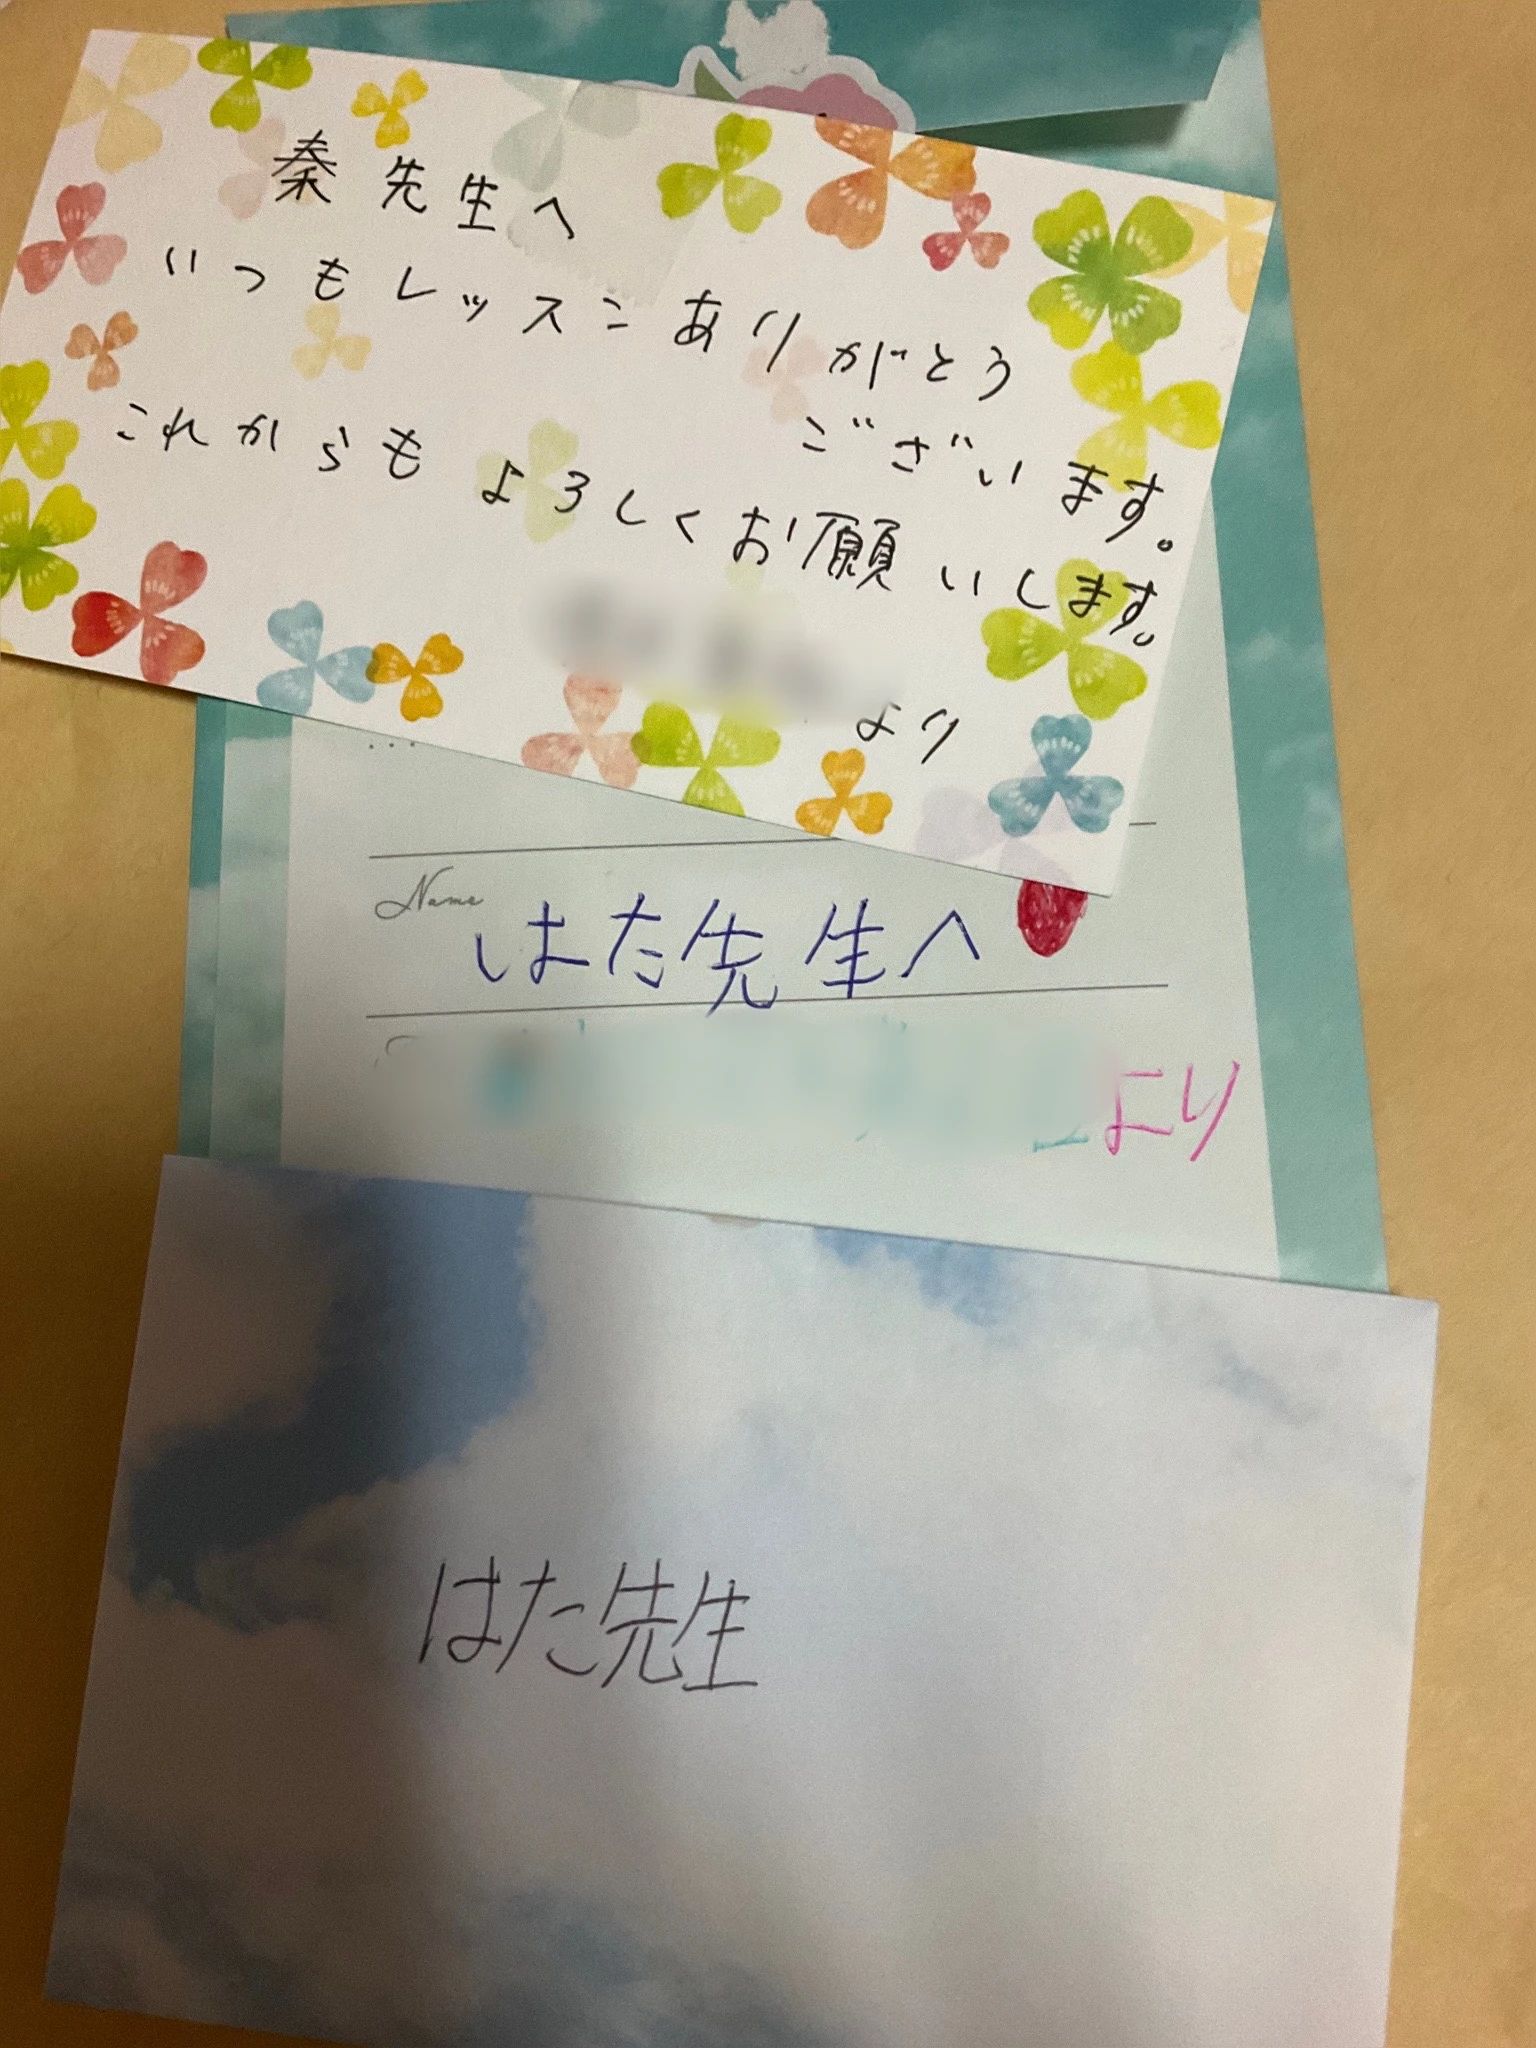 秦先生へ
いつもレッスンありがとう
ございます。
これからもよろしくお願いします。
より
Name はた先生へ
より
はた先生